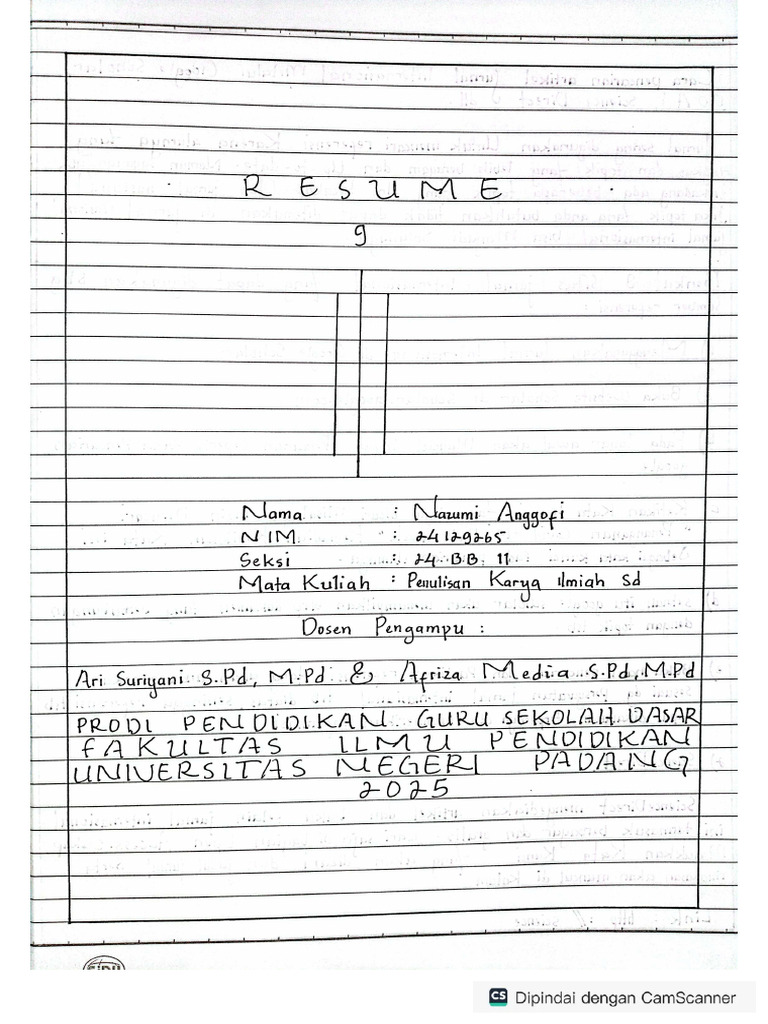 RESUME
9
Nama : Nazumi Anggofi
NIM : 24129265
Seksi : 24 BB 11
Mata Kuliah : Penulisan Karya Ilmiah Sd
Dosen Pengampu :
Ari Suriyani S.Pd, M.Pd & Afriza Media S.Pd, M.Pd
PRODI PENDIDIKAN GURU SEKOLAH DASAR
FAKULTAS ILMU PENDIDIKAN
UNIVERSITAS NEGERI PADANG
2025
CS Dipindai dengan CamScanner